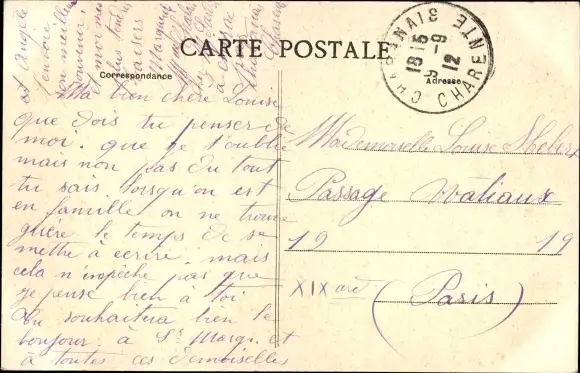 CARTE POSTALE
Correspondance
Adresse
CHABANAIS
18 15
9 -9
12
CHARENTE
Ma bien chère Louise
que dois tu penser de
moi. que je t'oublie
mais non pas du tout
tu sais lorsqu'on est
en famille on ne trouve
guère le temps de se
mettre à écrire, mais
cela n'empêche pas que
je pense bien à toi
tu souhaitera bien le
bonjour à Sr Marg. et
à toutes ces demoiselles
Angèle
t'envoie
son meilleur
souvenir
et moi mes
plus tendres
baisers
Mademoiselle Louise
Passage Watiaux
19 19
XIX ard
(Paris)